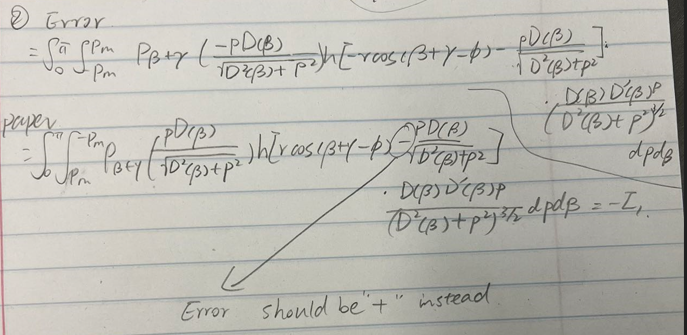 ② Error
= ∫₀^π ∫_{-Pm}^{Pm} P_{β+γ} ( -pD(β) / √D²(β)+p² ) h [ -r cos(β+γ-ϕ) - pD(β) / √D²(β)+p² ].
· D(β) D'(β) p / (D²(β)+p²)^{3/2}
dpdβ
paper
= ∫₀^π ∫_{Pm}^{-Pm} P_{β+γ} ( pD(β) / √D²(β)+p² ) h [ r cos(β+γ-ϕ) - pD(β) / √D²(β)+p² ]
· D(β) D'(β) p / (D²(β)+p²)^{3/2} dpdβ = -I₁.
Error should be "+" instead